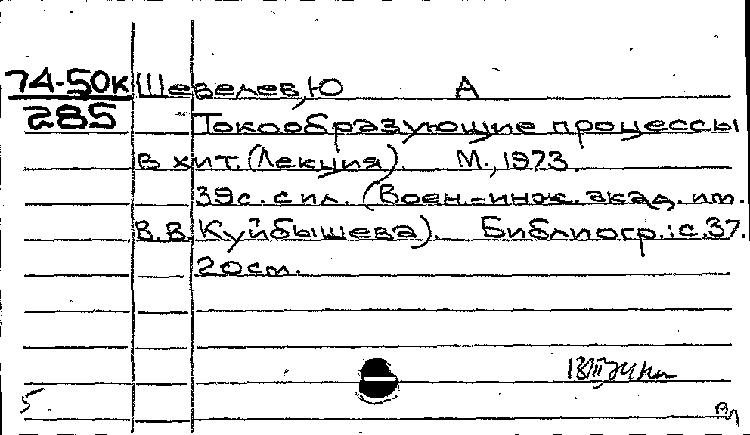 74-50к Шевелев, Ю А
285 Токообразующие процессы
в хит. (Лекция). М., 1973.
39с. с ил. (Воен.-инж. акад. им.
В.В. Куйбышева). Библиогр.: с. 37.
20 см.
5.